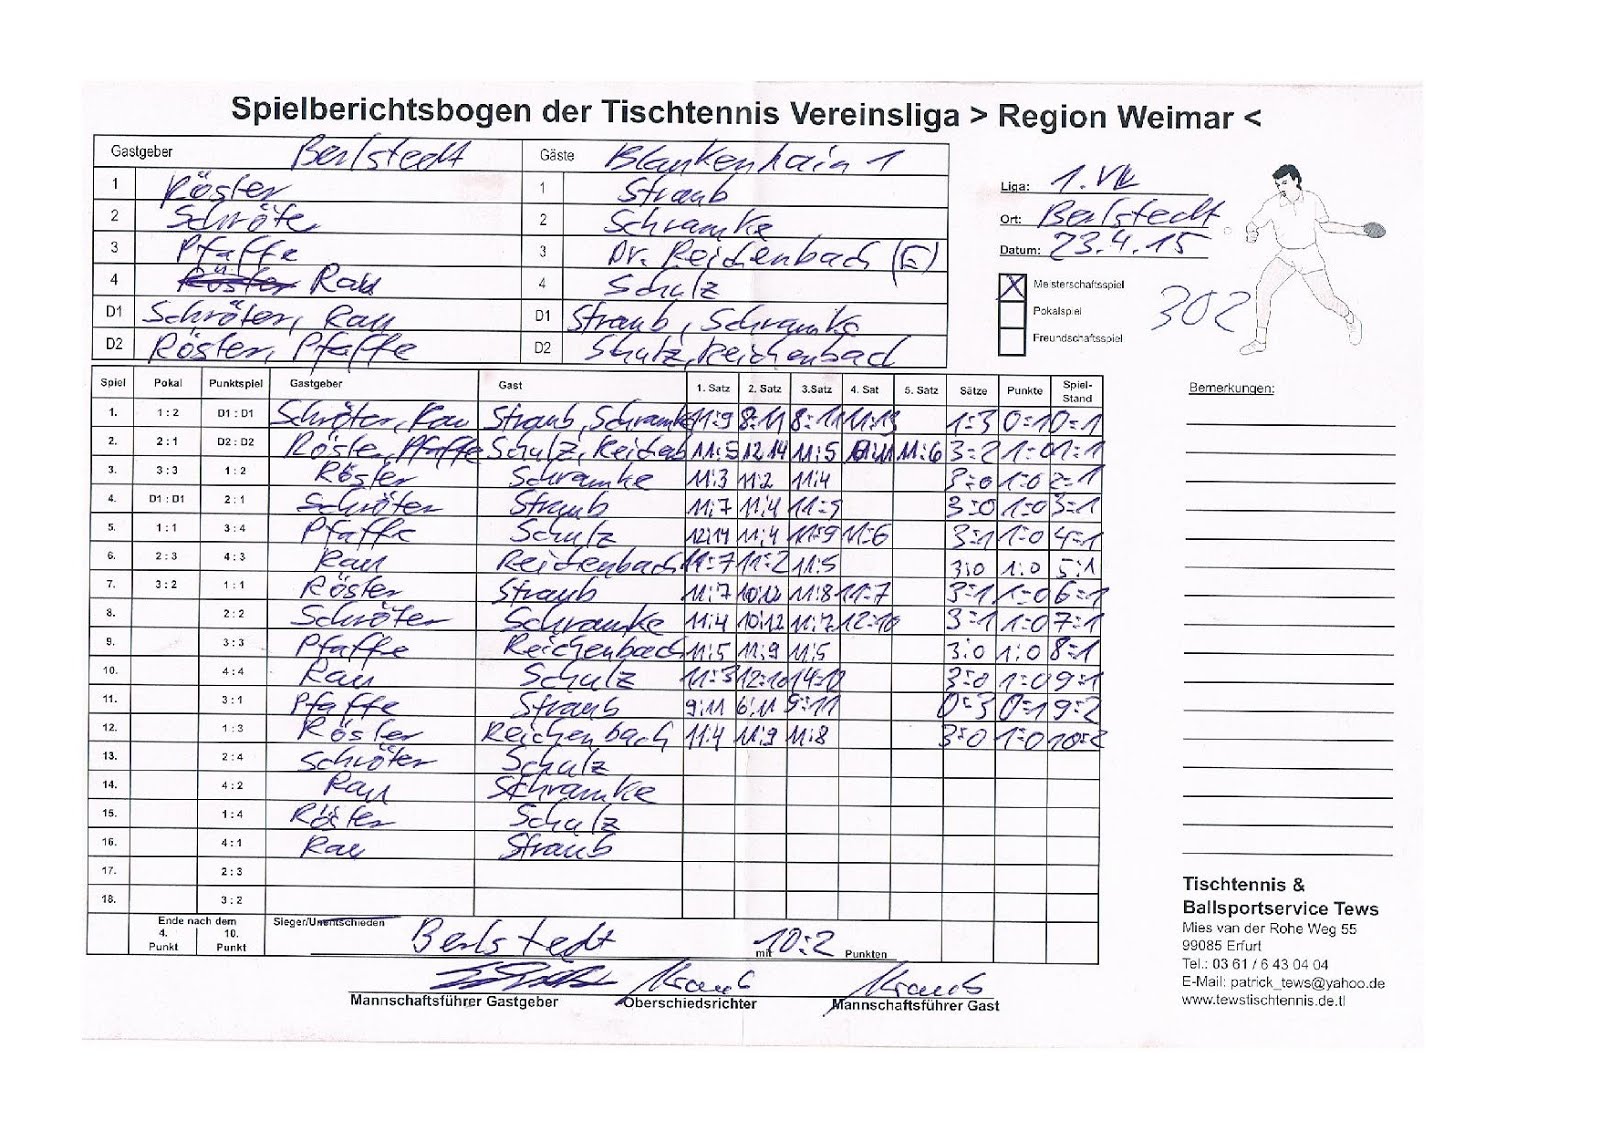 Spielberichtsbogen der Tischtennis Vereinsliga > Region Weimar <
Gastgeber Berlstedt Gäste Blankenhain 1
1 Röster 1 Straub
2 Schröte 2 Schramke
3 Pfaffe 3 Dr. Reichenbach (E)
4 Röster Rau 4 Schulz
D1 Schröter, Rau D1 Straub, Schramke
D2 Röster, Pfaffe D2 Schulz, Reichenbach
Liga: 1. VL
Ort: Berlstedt
Datum: 23.4.15
X Meisterschaftsspiel
Pokalspiel
Freundschaftsspiel
302
Spiel Pokal Punktspiel Gastgeber Gast 1. Satz 2. Satz 3.Satz 4. Sat 5. Satz Sätze Punkte Spiel-Stand
1. 1 : 2 D1 : D1 Schröter, Rau Straub, Schramke 11:9 8:11 8:11 11:13 1:3 0:1 0:1
2. 2 : 1 D2 : D2 Röster, Pfaffe Schulz, Reichenb 11:5 12:14 11:5 11:6 3:2 1:0 1:1
3. 3 : 3 1 : 2 Röster Schramke 11:3 11:2 11:4 3:0 1:0 2:1
4. D1 : D1 2 : 1 Schröter Straub 11:7 11:4 11:5 3:0 1:0 3:1
5. 1 : 1 3 : 4 Pfaffe Schulz 12:14 11:4 11:9 11:6 3:1 1:0 4:1
6. 2 : 3 4 : 3 Rau Reichenbach 11:7 11:2 11:5 3:0 1:0 5:1
7. 3 : 2 1 : 1 Röster Straub 11:7 10:12 11:8 11:7 3:1 1:0 6:1
8. 2 : 2 Schröter Schramke 11:4 10:12 11:7 12:10 3:1 1:0 7:1
9. 3 : 3 Pfaffe Reichenbach 11:5 11:9 11:5 3:0 1:0 8:1
10. 4 : 4 Rau Schulz 11:3 12:10 14:12 3:0 1:0 9:1
11. 3 : 1 Pfaffe Straub 9:11 6:11 9:11 0:3 0:1 9:2
12. 1 : 3 Röster Reichenbach 11:4 11:9 11:8 3:0 1:0 10:2
13. 2 : 4 Schröter Schulz
14. 4 : 2 Rau Schramke
15. 1 : 4 Röster Schulz
16. 4 : 1 Rau Straub
17. 2 : 3
18. 3 : 2
Ende nach dem
4. Punkt 10. Punkt
Sieger/Unentschieden Berlstedt mit 10:2 Punkten
Mannschaftsführer Gastgeber Oberschiedsrichter Mannschaftsführer Gast
Bemerkungen:
Tischtennis &
Ballsportservice Tews
Mies van der Rohe Weg 55
99085 Erfurt
Tel.: 03 61 / 6 43 04 04
E-Mail: patrick_tews@yahoo.de
www.tewstischtennis.de.tl